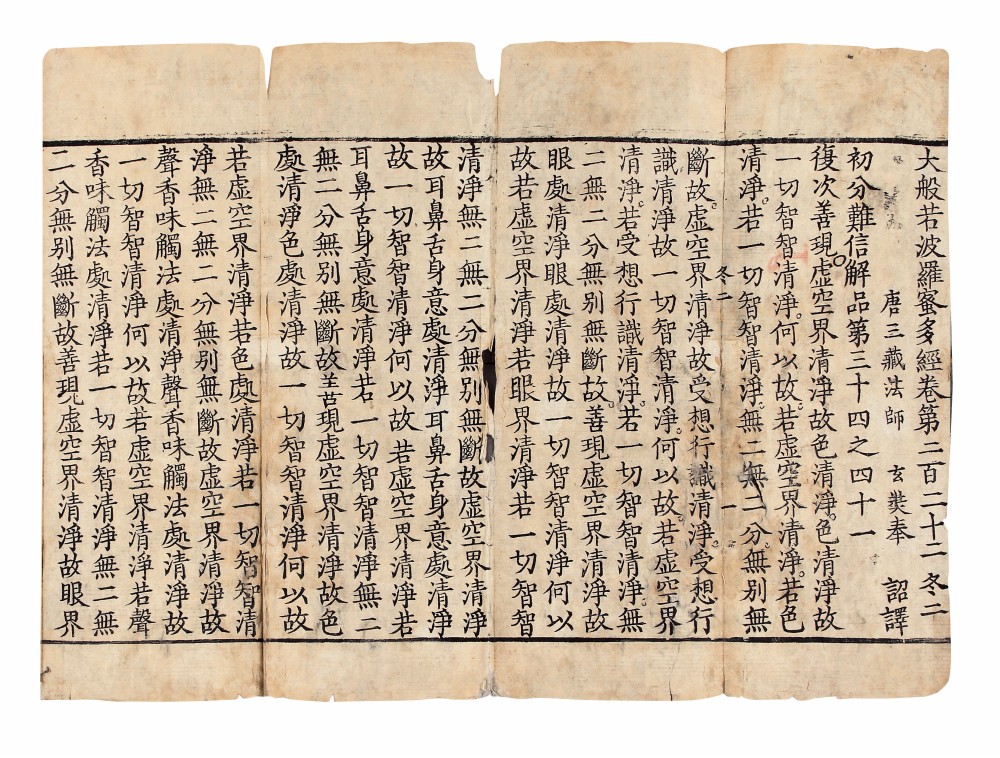 大般若波羅蜜多經卷第二百二十二 冬二
唐三藏法師 玄奘奉 詔譯
初分難信解品第三十四之四十一
復次善現虛空界清淨故色清淨色清淨故
一切智智清淨何以故若虛空界清淨若色
清淨若一切智智清淨無二無二分無別無
冬二 一
斷故虛空界清淨故受想行識清淨受想行
識清淨故一切智智清淨何以故若虛空界
清淨若受想行識清淨若一切智智清淨無
二無二分無別無斷故善現虛空界清淨故
眼處清淨眼處清淨故一切智智清淨何以
故若虛空界清淨若眼界清淨若一切智智
清淨無二無二分無別無斷故虛空界清淨
故耳鼻舌身意處清淨耳鼻舌身意處清淨
故一切智智清淨何以故若虛空界清淨若
耳鼻舌身意處清淨若一切智智清淨無二
無二分無別無斷故善現虛空界清淨故色
處清淨色處清淨故一切智智清淨何以故
若虛空界清淨若色處清淨若一切智智清
淨無二無二分無別無斷故虛空界清淨故
聲香味觸法處清淨聲香味觸法處清淨故
一切智智清淨何以故若虛空界清淨若聲
香味觸法處清淨若一切智智清淨無二無
二分無別無斷故善現虛空界清淨故眼界